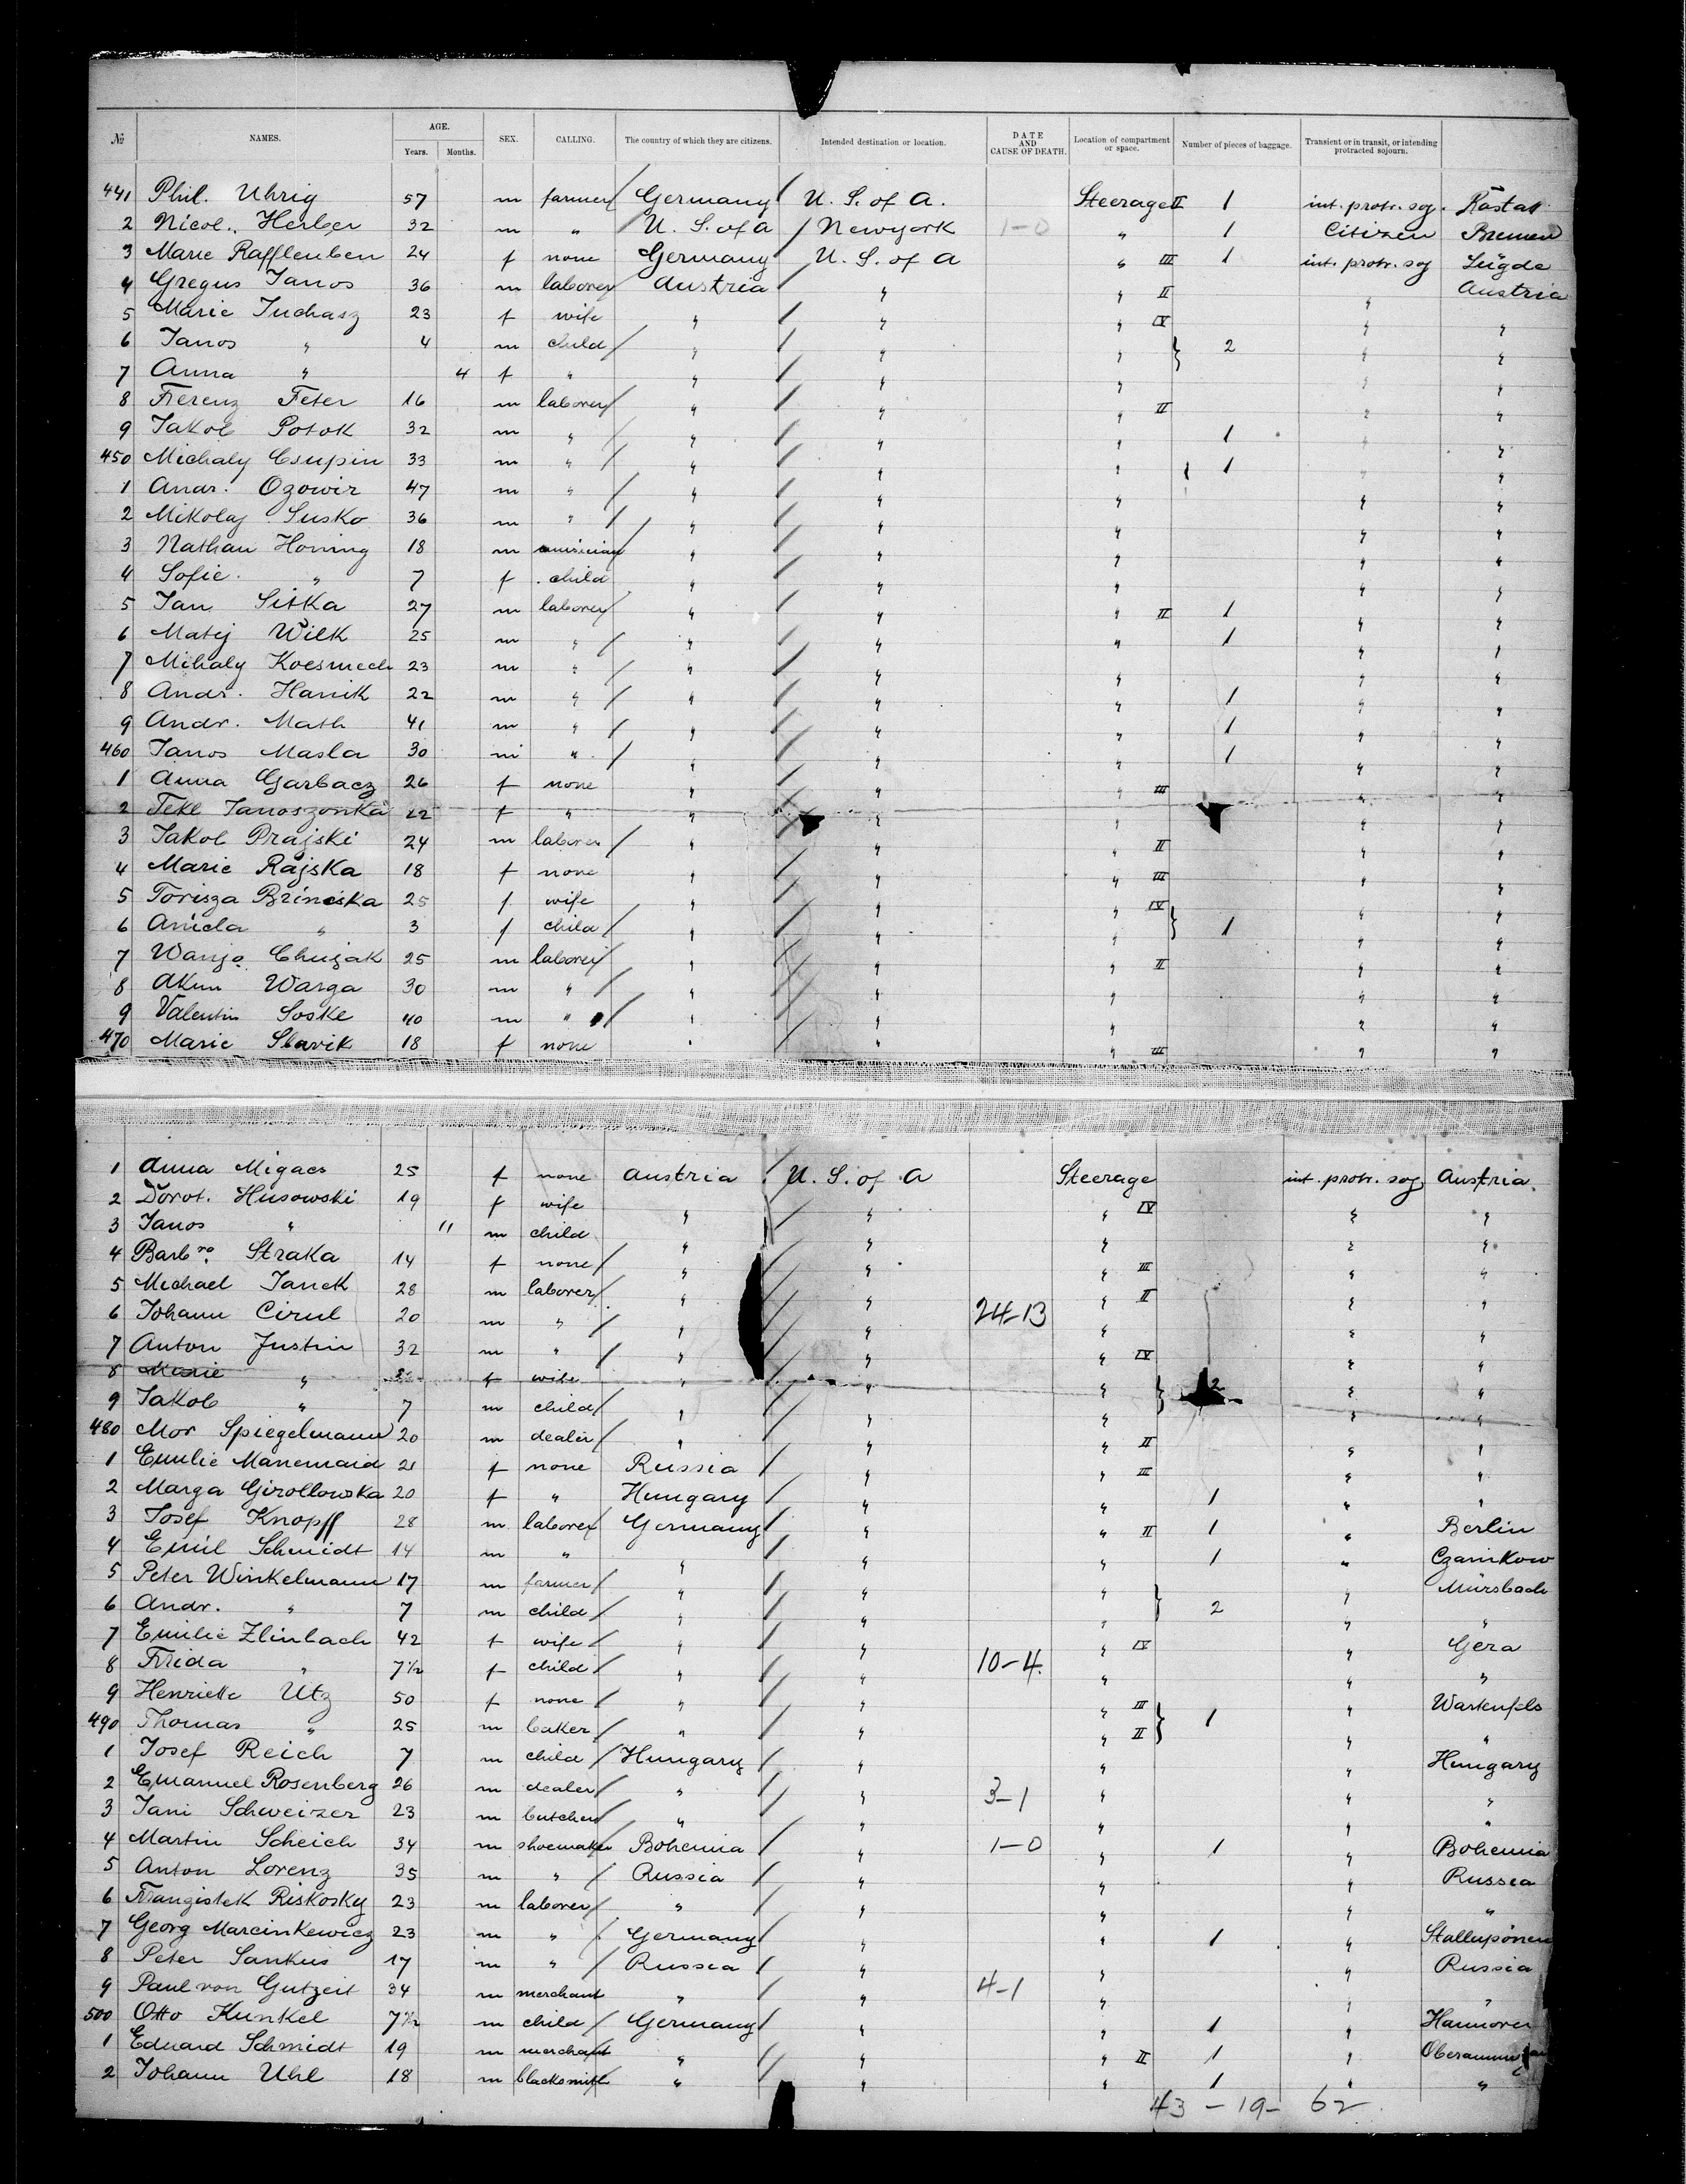 № NAMES. AGE. Years. Months. SEX. CALLING. The country of which they are citizens. Intended destination or location. DATE AND CAUSE OF DEATH. Location of compartment or space. Number of pieces of baggage. Transient or in transit, or intending protracted sojourn.
441 Phil. Uhrig 57 m farmer Germany U. S. of A. Steerage II 1 int. protr. soj. Rastatt
2 Nicol. Herber 32 m " U. S. of a Newyork 1-0 " 1 Citizen Bremen
3 Marie Raffleuben 24 f none Germany U. S. of A " III 1 int. protr. soj Lügde
4 Gregus Janos 36 m laborer Austria " " II " Austria
5 Marie Juhasz 23 f wife " " " IV " "
6 Janos " 4 m child " " " } 2 " "
7 Anna " 4 f " " " " " "
8 Ferenz Feter 16 m laborer " " " II " "
9 Jakob Potok 32 m " " " " 1 " "
450 Michaly Csupin 33 m " " " " 1 " "
1 Andr. Ozowir 47 m " " " " " "
2 Mikolaj Susko 36 m " " " " " "
3 Nathan Honing 18 m musician " " " " "
4 Sofie " 7 f child " " " " "
5 Jan Sitka 27 m laborer " " " II 1 " "
6 Matij Wilk 25 m " " " " 1 " "
7 Mihaly Koesmech 23 m " " " " " "
8 Andr. Hanik 22 m " " " " 1 " "
9 Andr. Math 41 m " " " " 1 " "
460 Janos Masla 30 m " " " " 1 " "
1 Anna Garbacz 26 f none " " " III " "
2 Tekl Janoszonka 22 f " " " " " "
3 Jakob Prajski 24 m laborer " " " II " "
4 Marie Rajska 18 f none " " " III " "
5 Torisza Brinciska 25 f wife " " " IV " "
6 Aniela " 3 f child " " " } 1 " "
7 Wanjo Chujak 25 m laborer " " " II " "
8 Akim Warga 30 m " " " " " "
9 Valentin Soske 40 m " " " " " "
470 Marie Slavik 18 f none " " " III " "
1 Anna Migacs 25 f none Austria U. S. of A Steerage int. protr. soj Austria
2 Dorot. Husowski 19 f wife " " " IV " "
3 Janos " 11 m child " " " " "
4 Barb.ra Straka 14 f none " " " III " "
5 Michael Janek 28 m laborer " " " II " "
6 Johann Cirul 20 m " " " 24-13 " " "
7 Anton Justin 32 m " " " " IV " "
8 Marie " f wife " " " } 2 " "
9 Jakob " 7 m child " " " " "
480 Mor Spiegelmann 20 m dealer " " " II " "
1 Emilie Manemaid 21 f none Russia " " III " "
2 Marga Girollowska 20 f " Hungary " " 1 " "
3 Josef Knopff 28 m laborer Germany " " II 1 " Berlin
4 Emil Schmidt 14 m " " " " 1 " Czarnikow
5 Peter Winkelmann 17 m farmer " " " } " Mürsbach
6 Andr. " 7 m child " " " 2 " "
7 Emilie Zlinbach 42 f wife " " " IV " Gera
8 Frida " 7½ f child " " 10-4. " " "
9 Henriette Utz 50 f none " " " III } 1 " Wartenfels
490 Thomas " 25 m baker " " " II " "
1 Josef Reich 7 m child Hungary " " " Hungary
2 Emanuel Rosenberg 26 m dealer " " 3-1 " " "
3 Jani Schweizer 23 m butcher " " " " "
4 Martin Scheich 34 m shoemaker Bohemia " 1-0 " 1 " Bohemia
5 Anton Lorenz 35 m " Russia " " " Russia
6 Franzistek Riskosky 23 m laborer " " " " "
7 Georg Marcinkewicz 23 m " Germany " " 1 " Stallupönen
8 Peter Sankus 17 m " Russia " " " Russia
9 Paul von Gutzeit 34 m merchant " " 4-1 " " "
500 Otto Kunkel 7½ m child Germany " " 1 " Hannover
1 Eduard Schmidt 19 m merchant " " " II 1 "
2 Johann Uhl 18 m blacksmith " " " 1 " "
43 - 19 - 62